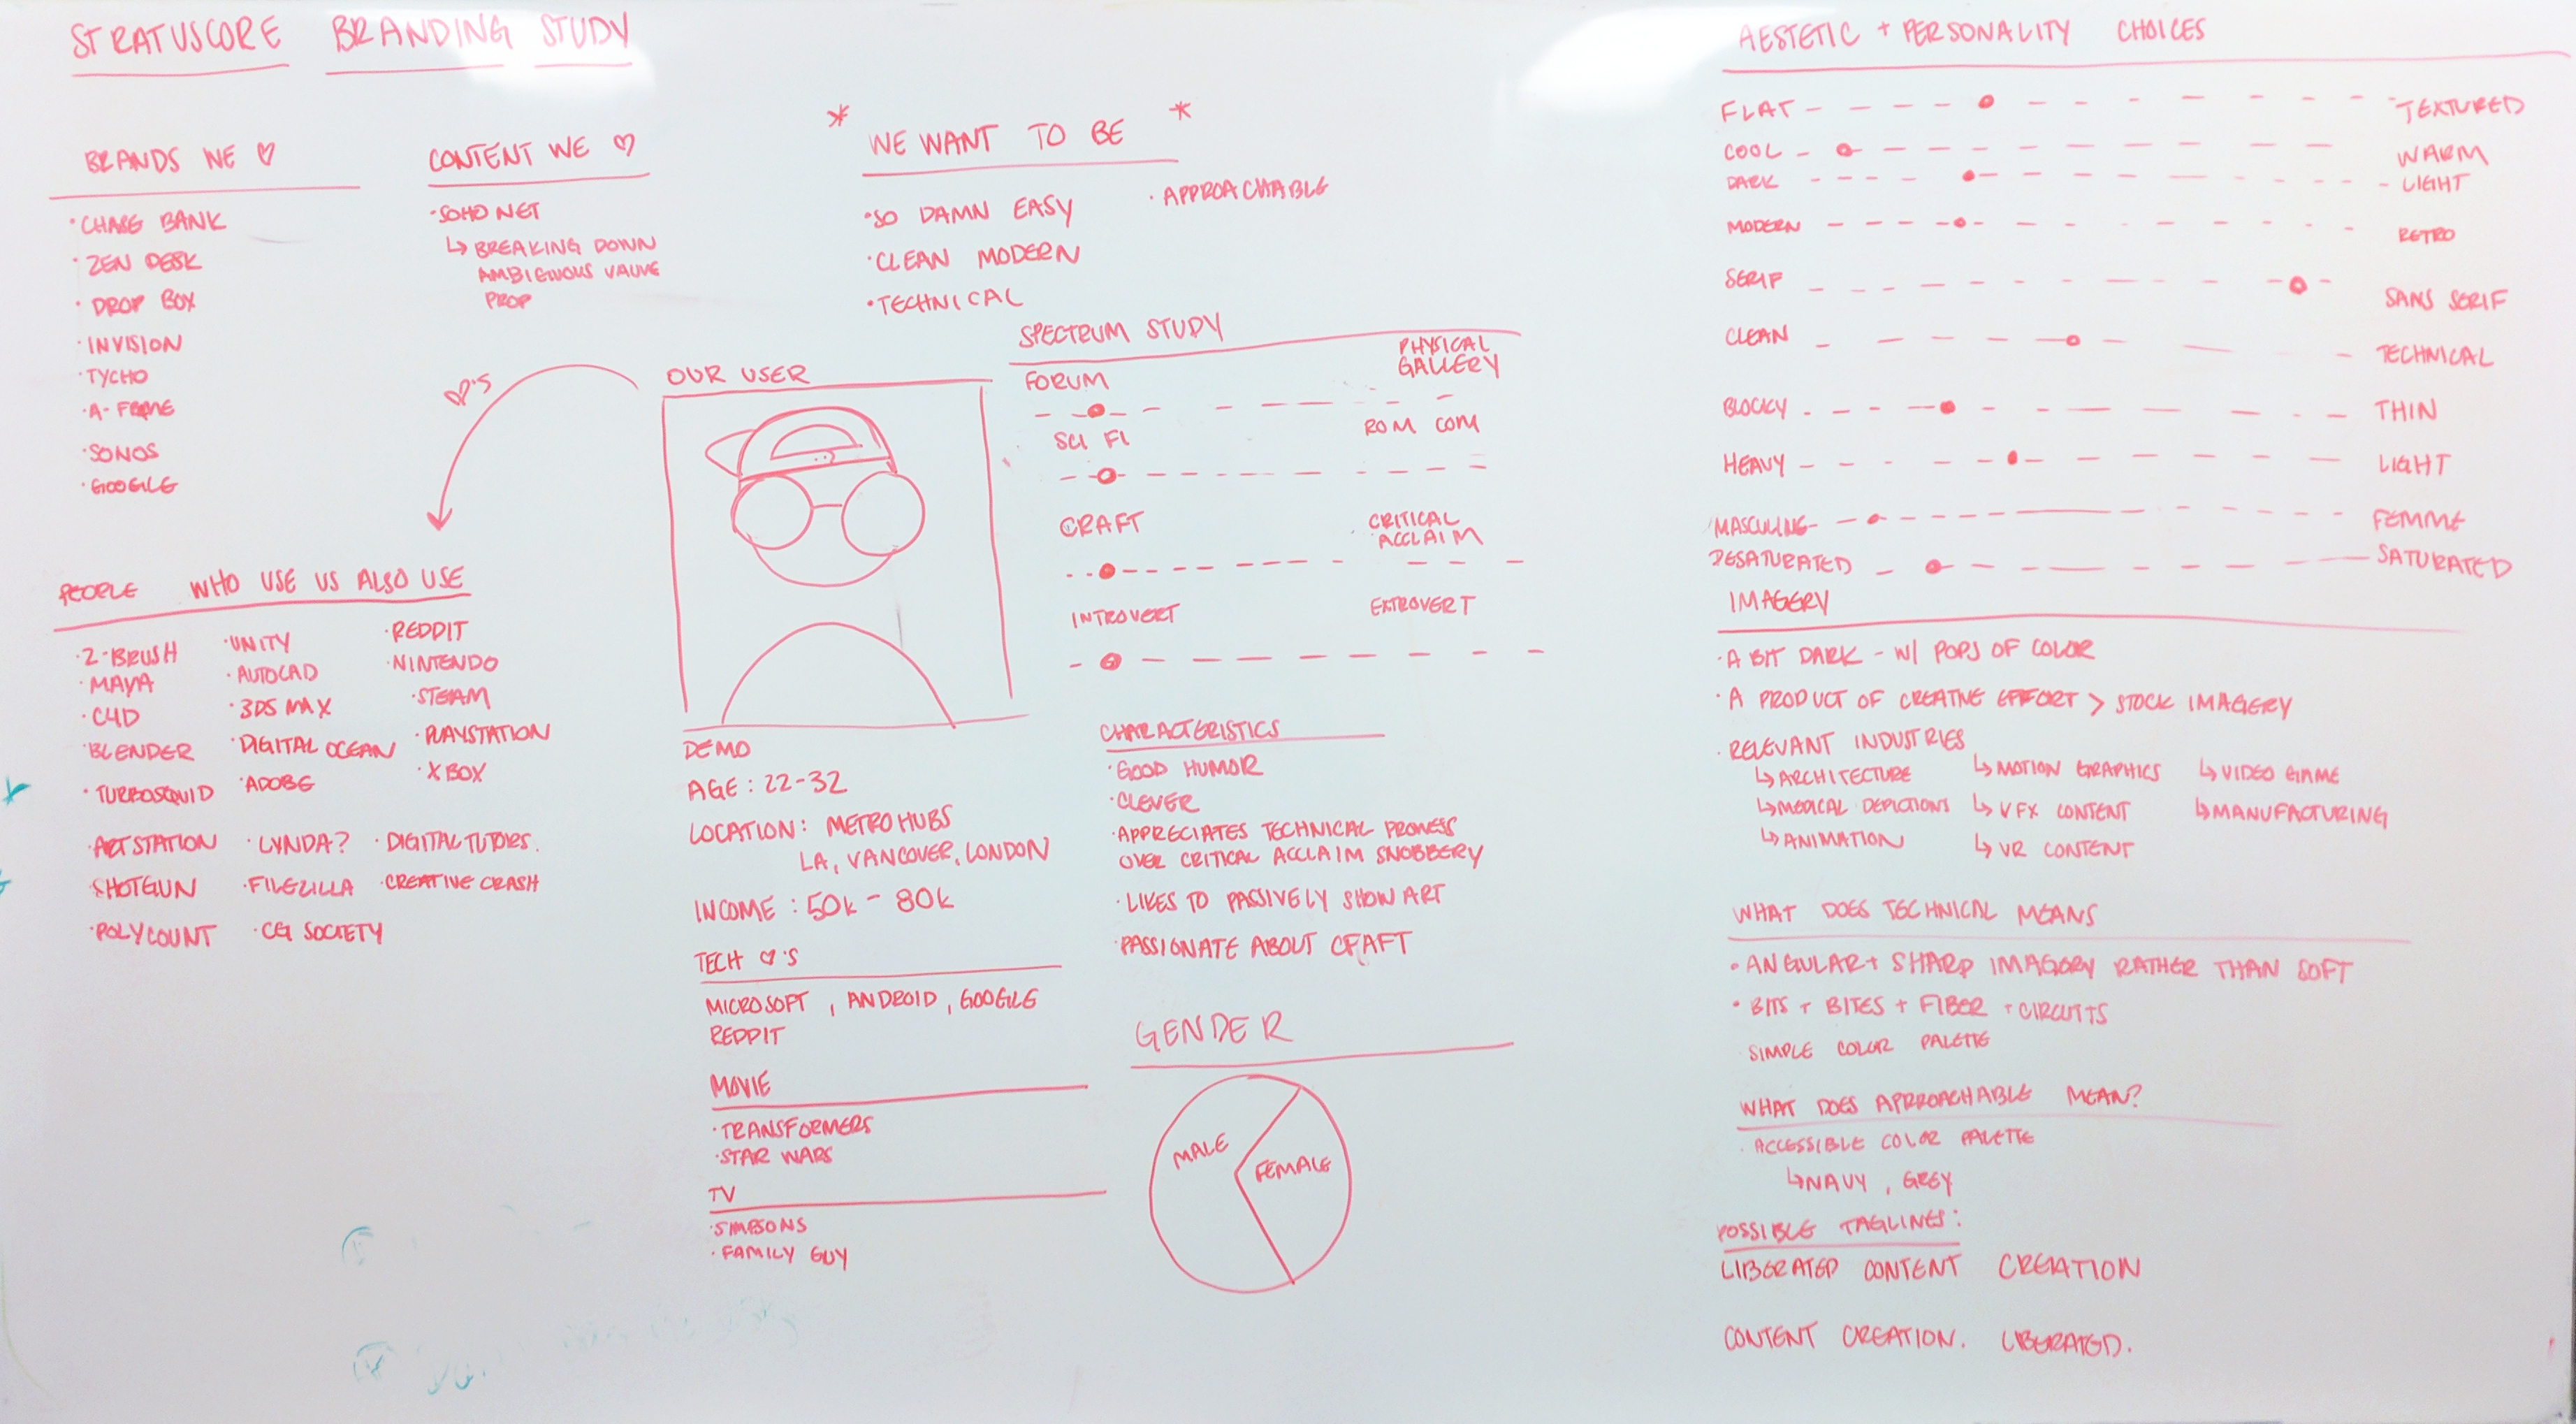 STRATUSCORE BRANDING STUDY
BRANDS WE ♡
· CHASE BANK
· ZEN DESK
· DROP BOX
· INVISION
· TYCHO
· A-FRAME
· SONOS
· GOOGLE
CONTENT WE ♡
· SOHO NET
↳ BREAKING DOWN
AMBIGUOUS VALUE
PROP
* WE WANT TO BE *
· SO DAMN EASY
· CLEAN MODERN
· TECHNICAL
· APPROACHABLE
♡'S
PEOPLE WHO USE US ALSO USE
· Z-BRUSH
· MAYA
· C4D
· BLENDER
· TURBOSQUID
· ARTSTATION
· SHOTGUN
· POLYCOUNT
· UNITY
· AUTOCAD
· 3DS MAX
· DIGITAL OCEAN
· ADOBE
· LYNDA?
· FILEZILLA
· CG SOCIETY
· REDDIT
· NINTENDO
· STEAM
· PLAYSTATION
· XBOX
· DIGITAL TUTORS.
· CREATIVE CRASH
OUR USER
DEMO
AGE : 22-32
LOCATION: METRO HUBS
LA, VANCOVER, LONDON
INCOME : 50K - 80K
TECH ♡'S
MICROSOFT, ANDROID, GOOGLE
REDDIT
MOVIE
· TRANSFORMERS
· STAR WARS
TV
· SIMPSONS
· FAMILY GUY
SPECTRUM STUDY
FORUM PHYSICAL
GALLERY
SCI FI ROM COM
CRAFT CRITICAL
ACCLAIM
INTROVERT EXTROVERT
CHARACTERISTICS
· GOOD HUMOR
· CLEVER
· APPRECIATES TECHNICAL PROWESS
OVER CRITICAL ACCLAIM SNOBBERY
· LIKES TO PASSIVELY SHOW ART
· PASSIONATE ABOUT CRAFT
GENDER
MALE
FEMALE
AESTETIC + PERSONALITY CHOICES
FLAT TEXTURED
COOL WARM
DARK LIGHT
MODERN RETRO
SERIF SANS SERIF
CLEAN TECHNICAL
BLOCKY THIN
HEAVY LIGHT
MASCULINE FEMME
DESATURATED SATURATED
IMAGERY
· A BIT DARK - W/ POPS OF COLOR
· A PRODUCT OF CREATIVE EFFORT > STOCK IMAGERY
· RELEVANT INDUSTRIES
↳ ARCHITECTURE ↳ MOTION GRAPHICS ↳ VIDEO GAME
↳ MEDICAL DEPICTIONS ↳ VFX CONTENT ↳ MANUFACTURING
↳ ANIMATION ↳ VR CONTENT
WHAT DOES TECHNICAL MEANS
· ANGULAR + SHARP IMAGERY RATHER THAN SOFT
· BITS + BITES + FIBER + CIRCUITS
SIMPLE COLOR PALETTE
WHAT DOES APPROACHABLE MEAN?
· ACCESSIBLE COLOR PALETTE
↳ NAVY, GREY
POSSIBLE TAGLINES:
LIBERATED CONTENT CREATION
CONTENT CREATION. LIBERATED.